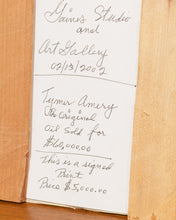 Gaines Studio
and
Art Gallery
02/13/2002
Turner Amery
The Original
Oil Sold for
$60,000.00
This is a signed
Print
Price $5,000.00